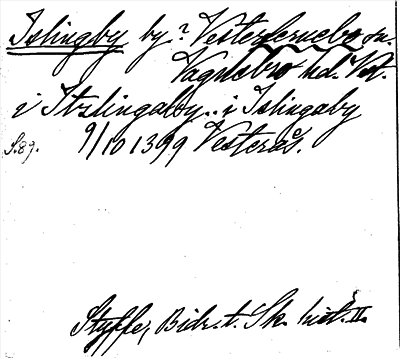 Islingby by? Vesterfernebo sn.
Vagnsbro hd. Vstm.
i Itzlingaby.. i Islingaby
S. 89. 9/10 1399 Vesterås.
Styffe, Bidr. t. Sk. hist. II.